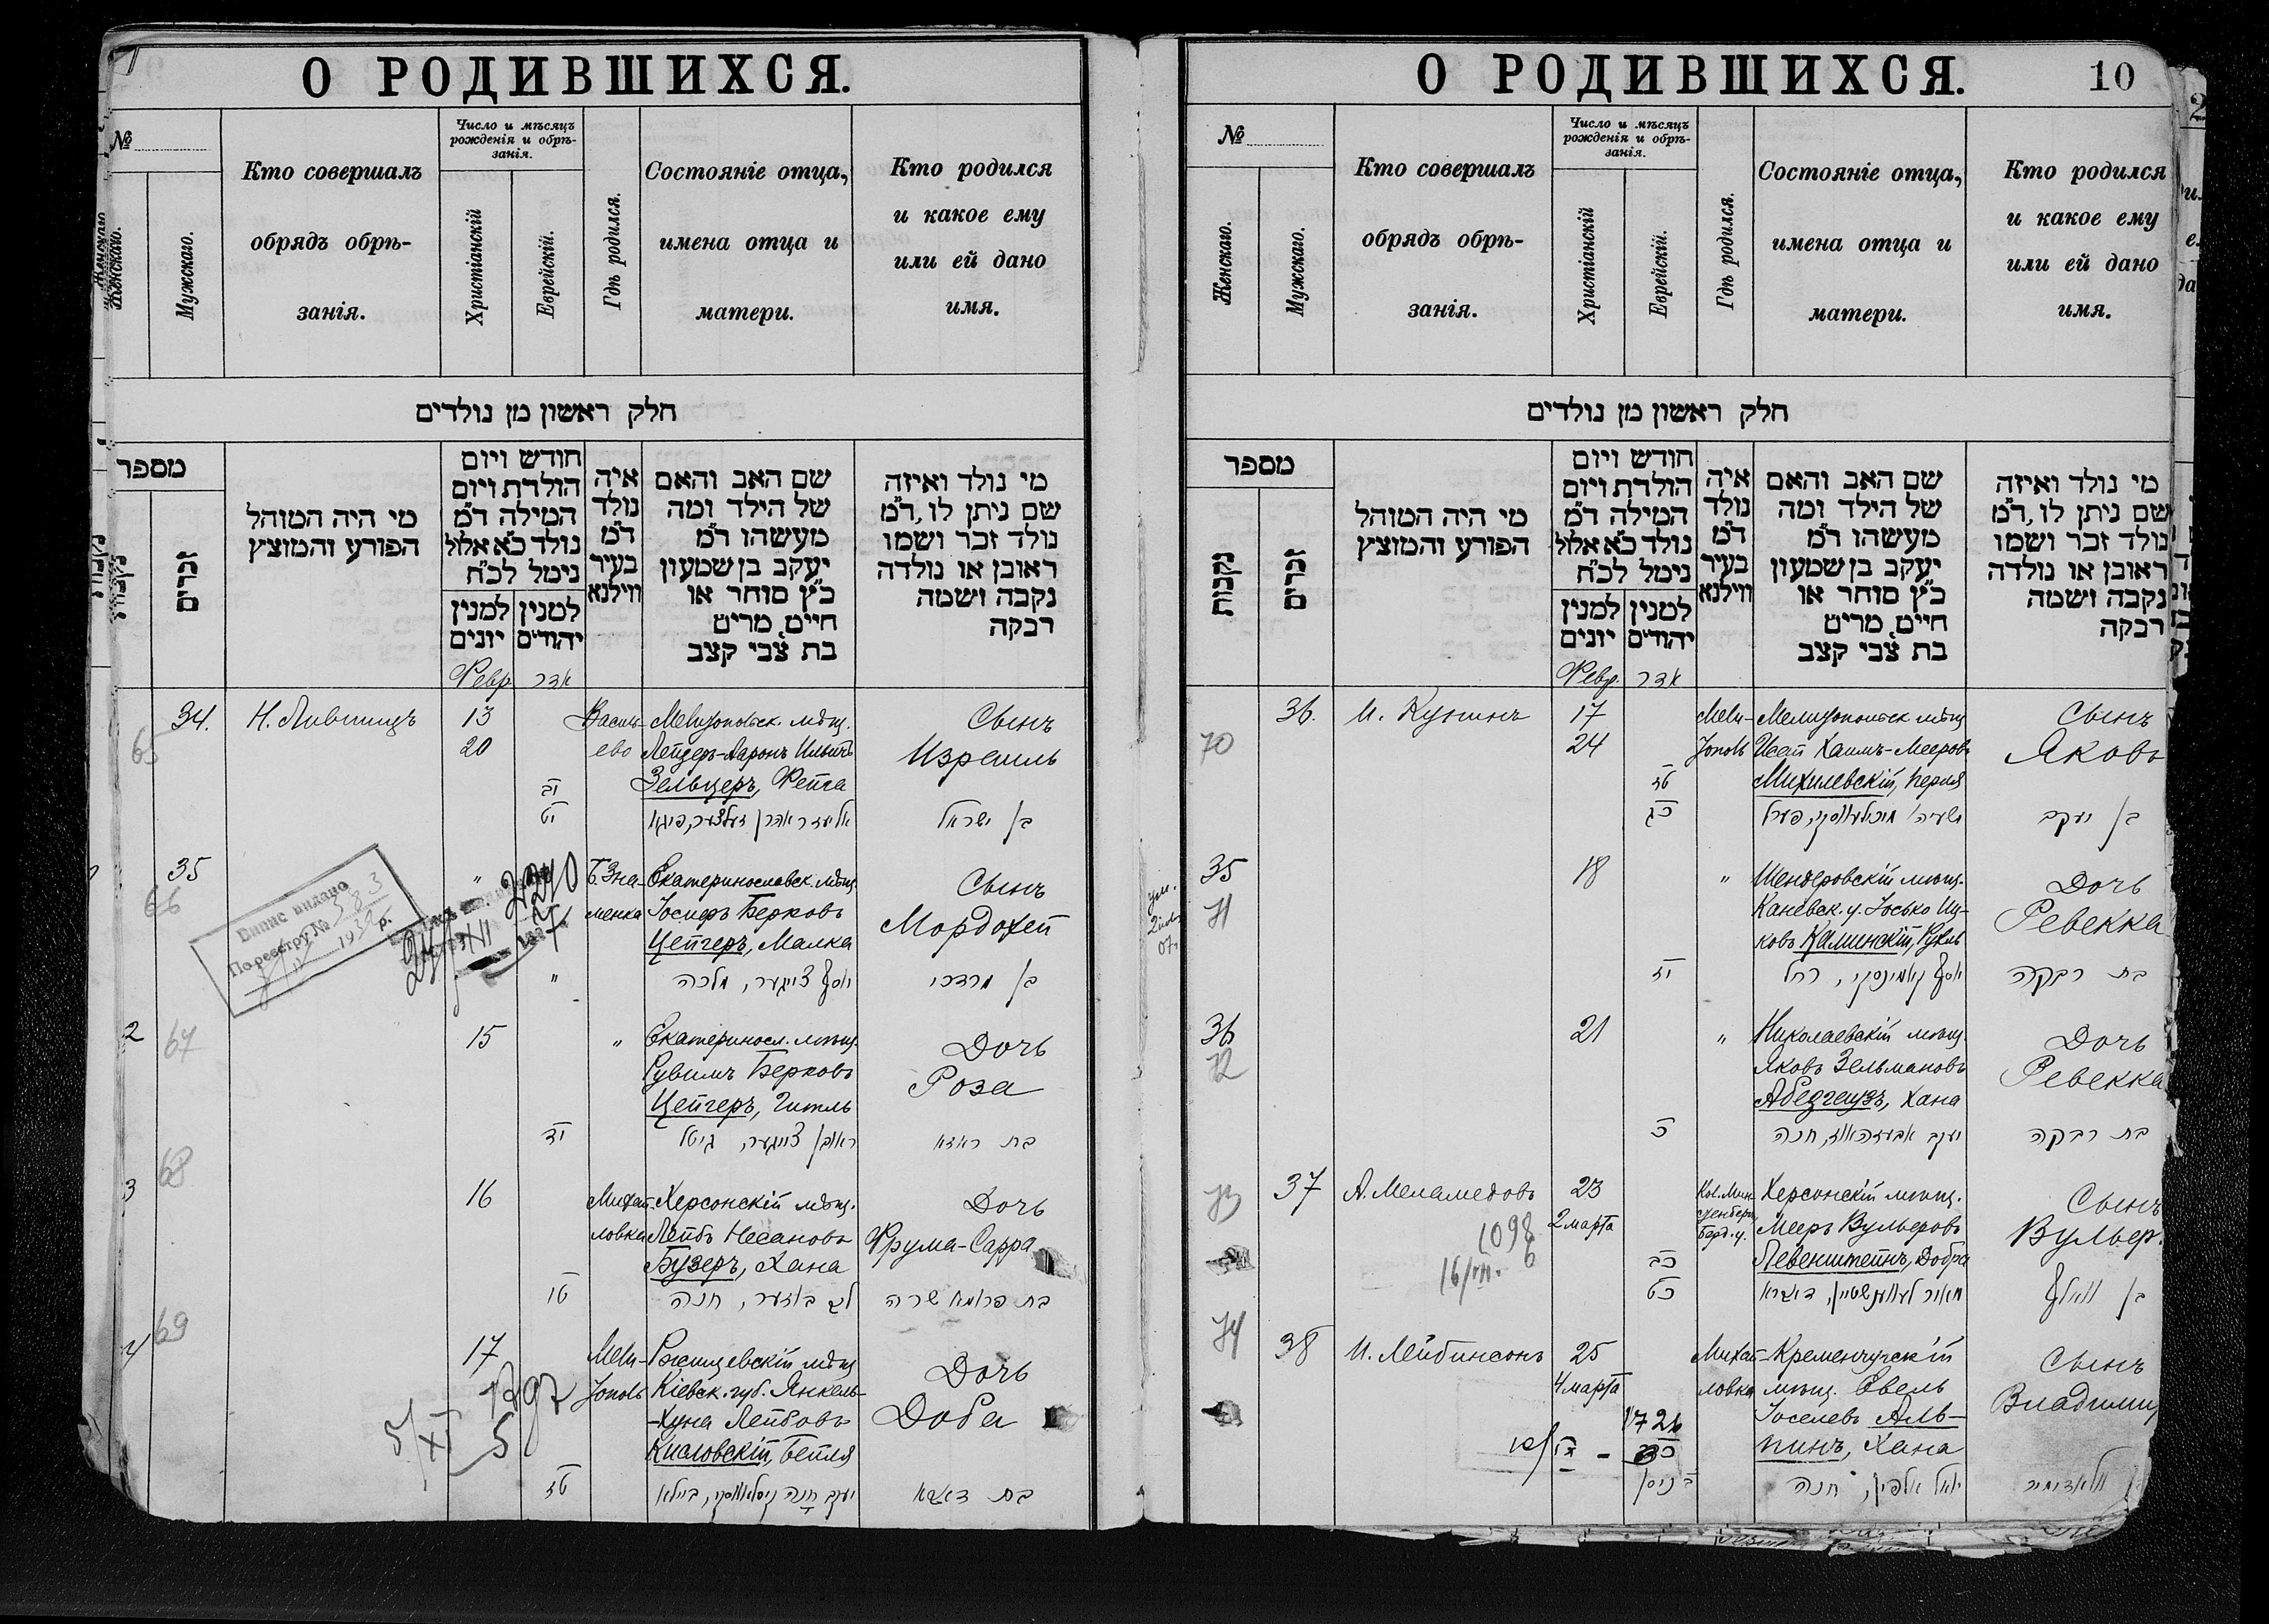 О РОДИВШИХСЯ.
№
Женскаго.
Мужскаго.
Кто совершалъ
обрядъ обрѣ-
занія.
Число и мѣсяцъ
рожденія и обрѣ-
занія.
Христіанскій
Еврейскій.
Гдѣ родился.
Состояніе отца,
имена отца и
матери.
Кто родился
и какое ему
или ей дано
имя.
חלק ראשון מן נולדים
מספר
זכרים
מי היה המוהל
הפורע והמוצץ
חודש ויום
הולדת ויום
המילה ד״מ
נולד כ״א אלול
נימל לכ״ח
למנין יונים
למנין יהודים
איה
נולד
ד״מ
בעיר
ווילנא
שם האב והאם
של הילד ומה
מעשהו ד״מ
יעקב בן שמעון
כ״ץ סוחר או
חייט, מרים
בת צבי קצב
מי נולד ואיזה
שם ניתן לו, ד״מ
נולד זכר ושמו
ראובן או נולדה
נקבה ושמה
רבקה
Февр.
אדר
34.
65
Н. Лившицъ
13
20
יב
יט
Василь-
ево
Мелитопольск. мѣщ.
Лейзеръ-Ааронъ
Зельцеръ, Фейга
אליעזר אהרן זעלצער, פייגא
Сынъ
Израиль
בן ישראל
35
66
"
Б. Зна-
менка
Екатеринославск. мѣщ.
Іосифъ Берковъ
Цейгеръ, Малка
יוסף צייגער, מלכה
Сынъ
Мордохей
בן מרדכי
Випис видано
По реестру № 383
193 р.
2240
2
67
15
יד
"
Екатериносл. мѣщ.
Рувимъ Берковъ
Цейгеръ, Гитль
ראובן צייגער, גיטל
Дочь
Роза
בת ראזא
3
68
16
טו
Михай-
ловка
Херсонскій мѣщ.
Лейбъ Несановъ
Бузеръ, Хана
ליב בוזער, חנה
Дочь
Фрума-Сарра
בת פרומא שרה
4
69
17
טז
Мели-
тополь
Ржищевскій мѣщ.
Кіевск. губ. Янкель-
-Хуна Лейбовъ
Кисловскій, Бейля
Дочь
Доба
בת דאבא
1292
5/XI 5
О РОДИВШИХСЯ.
10
№
Женскаго.
Мужскаго.
Кто совершалъ
обрядъ обрѣ-
занія.
Число и мѣсяцъ
рожденія и обрѣ-
занія.
Христіанскій
Еврейскій.
Гдѣ родился.
Состояніе отца,
имена отца и
матери.
Кто родился
и какое ему
или ей дано
имя.
חלק ראשון מן נולדים
מספר
נקבות
זכרים
מי היה המוהל
הפורע והמוצץ
חודש ויום
הולדת ויום
המילה ד״מ
נולד כ״א אלול
נימל לכ״ח
למנין יונים
למנין יהודים
איה
נולד
ד״מ
בעיר
ווילנא
שם האב והאם
של הילד ומה
מעשהו ד״מ
יעקב בן שמעון
כ״ץ סוחר או
חייט, מרים
בת צבי קצב
מי נולד ואיזה
שם ניתן לו, ד״מ
נולד זכר ושמו
ראובן או נולדה
נקבה ושמה
רבקה
Февр.
אדר
36.
70
И. Кунинъ
17
24
טז
כג
Мели-
тополь
Мелитопольск мѣщ.
Хаимъ-Мееровъ
Михилевскій, Перля
Сынъ
Яковъ
בן יעקב
35
71
18
יז
"
Шендеровскій мѣщ.
Каневск. у. Іосько Иц-
ковъ Каминскій, Рухль
יוסף קאמינסקי, רחל
Дочь
Ревекка
בת רבקה
36
72
21
כ
"
Николаевскій мѣщ.
Яковъ Зельмановъ
Абедгаузъ, Хана
Дочь
Ревекка
בת רבקה
37
73
А. Меламедовъ
23
2 марта
כב
כט
Херсонскій мѣщ.
Мееръ Вульфовъ
Левенштейнъ, Добра
Сынъ
Вульф.
בן וואלף
1098
38
74
И. Лейбинсонъ
25
4 марта
1726
Михай-
ловка
Кременчугскій
мѣщ. Евель
Іоселевъ Аль-
пинъ, Хана
Сынъ
Владимір